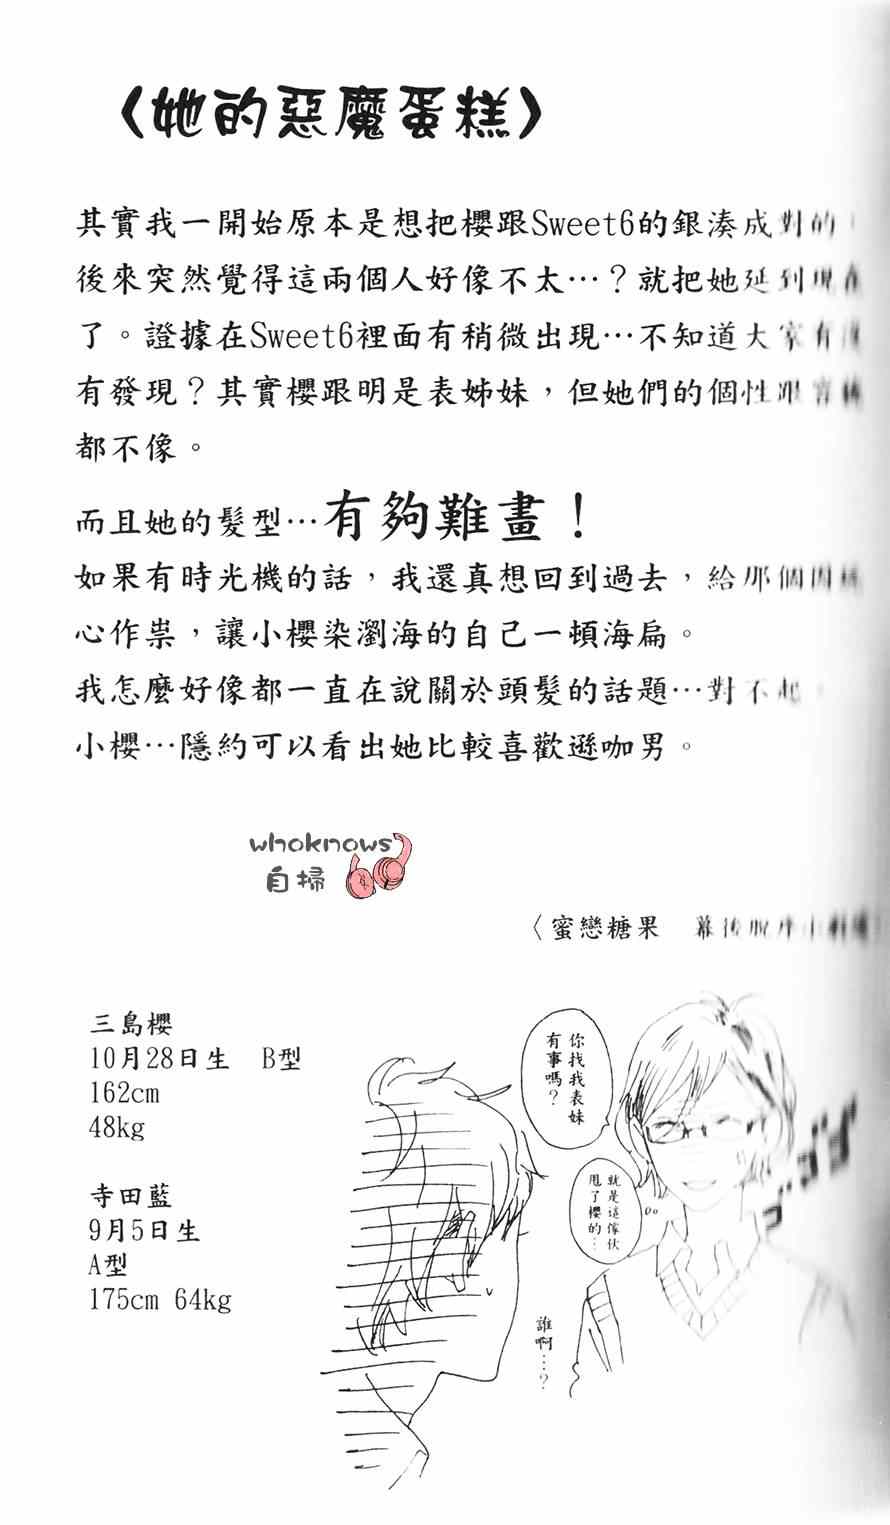 〈她的惡魔蛋糕〉
其實我一開始原本是想把櫻跟Sweet6的銀湊成對的
後來突然覺得這兩個人好像不太…？就把她延到現在
了。證據在Sweet6裡面有稍微出現…不知道大家有沒
有發現？其實櫻跟明是表姊妹，但她們的個性跟
都不像。
而且她的髮型…有夠難畫！
如果有時光機的話，我還真想回到過去，給那個因
心作祟，讓小櫻染瀏海的自己一頓海扁。
我怎麼好像都一直在說關於頭髮的話題…對不起
小櫻…隱約可以看出她比較喜歡遜咖男。
whoknows
自掃
〈蜜戀糖果 幕後
三島櫻
10月28日生 B型
162cm
48kg
寺田藍
9月5日生
A型
175cm 64kg
你找我表妹
有事嗎？
就是這傢伙
甩了櫻的…
誰啊…？
ゴゴゴ